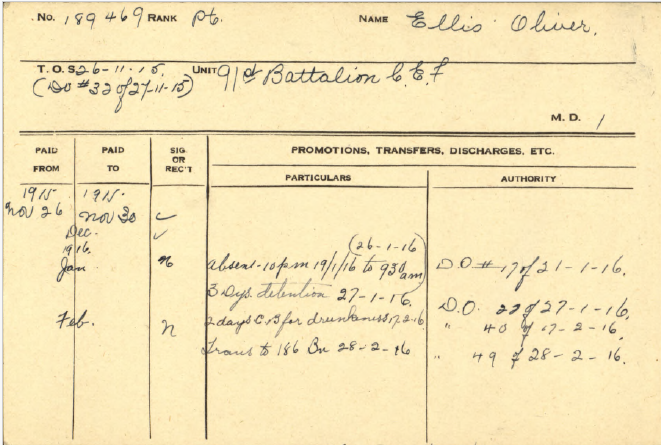 No. 189469 RANK Pt. NAME Ellis Oliver.
T.O.S 26-11-15. UNIT 91st Battalion C.E.F
(DO #32 of 27-11-15)
M.D. 1
PAID FROM PAID TO SIG. OR REC'T PROMOTIONS, TRANSFERS, DISCHARGES, ETC.
PARTICULARS AUTHORITY
1915 1915.
Nov 26 Nov 30 ✓
Dec. ✓
1916. (26-1-16)
Jan n absent-10pm 19/1/16 to 930 am D.O # 17 of 21-1-16.
3 Dys. detention 27-1-16. D.O. 22 of 27-1-16.
Feb. n 2 days C.B for drunkeness 17.2.16 " 40 of 17-2-16.
Trans to 186 Bn 28-2-16 " 49 of 28-2-16.